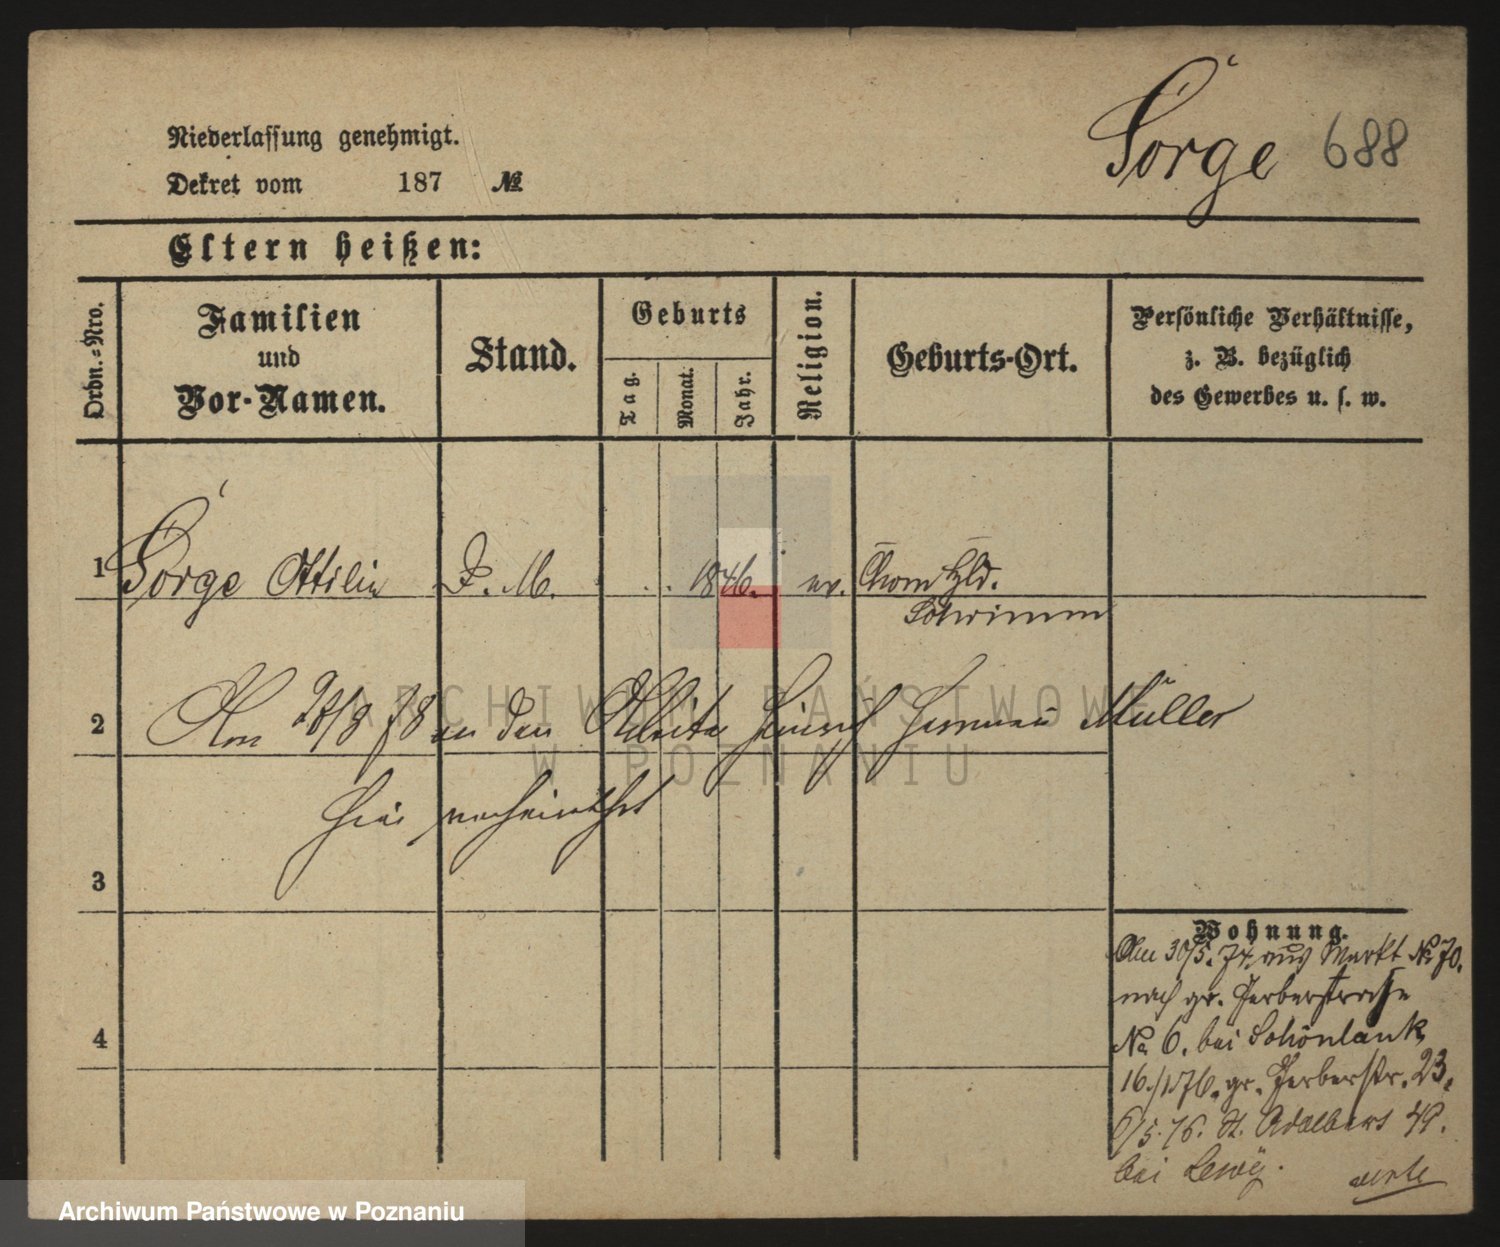 Sorge 688
Niederlassung genehmigt.
Dekret vom 187 №
Eltern heißen:
Ordn.-Nro.
Familien und Vor-Namen.
Stand.
Geburts
Tag.
Monat.
Jahr.
Religion.
Geburts-Ort.
Persönliche Verhältnisse,
z. B. bezüglich
des Gewerbes u. s. w.
1 Sorge Ottilie D. M. 1846. ev. Hld.
Schrimm
2 Am 26/8 78 an den Arbeiter Heinrich Hermann Müller
hier verheirathet
3
4
Wohnung.
Am 30/5. 74. aus Markt № 70.
nach gr. Gerberstrasse
№ 6. bei Schönlank
16./1 76. gr. Gerberstr. 23.
6/5. 76. St. Adalbert 49.
bei Lewy.
ARCHIWUM PAŃSTWOWE
W POZNANIU
Archiwum Państwowe w Poznaniu